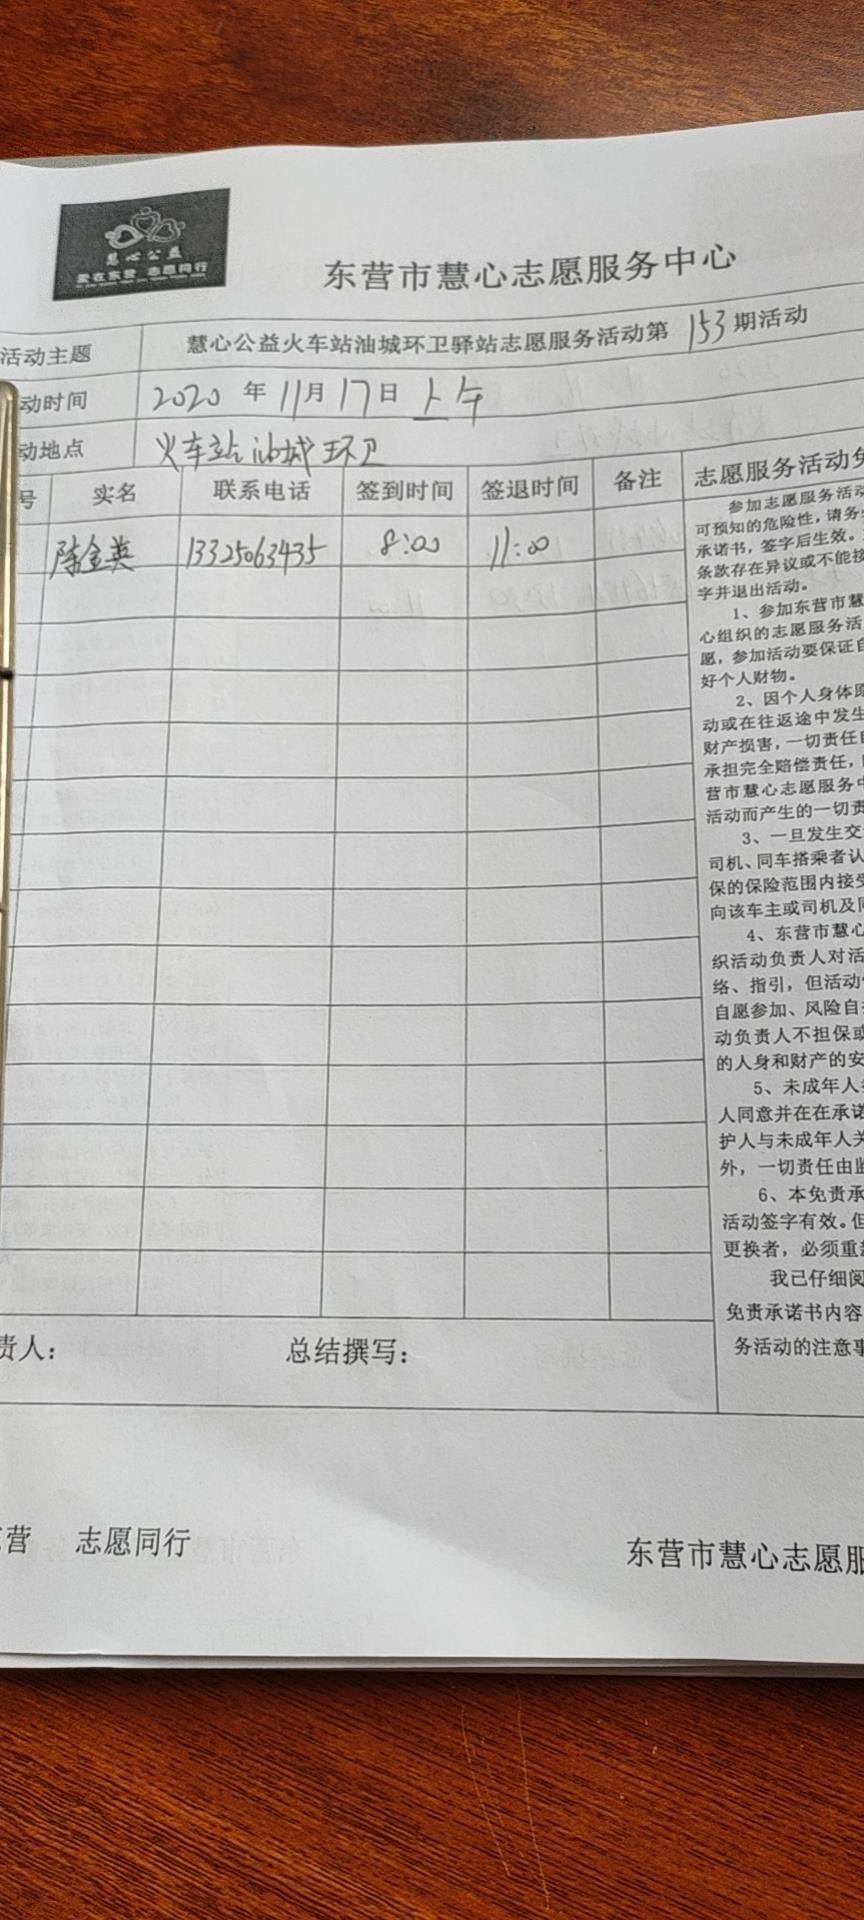 慧心公益
爱在东营 志愿同行
东营市慧心志愿服务中心
活动主题 慧心公益火车站油城环卫驿站志愿服务活动第153期活动
动时间 2020年11月17日上午
动地点 火车站油城环卫
号 实名 联系电话 签到时间 签退时间 备注 志愿服务活动免
陈金英 13325063435 8:00 11:00
参加志愿服务活动
可预知的危险性，请务
承诺书，签字后生效。
条款存在异议或不能接
字并退出活动。
1、参加东营市慧
心组织的志愿服务活
愿，参加活动要保证自
好个人财物。
2、因个人身体原
动或在往返途中发生
财产损害，一切责任自
承担完全赔偿责任，
营市慧心志愿服务中
活动而产生的一切责
3、一旦发生交
司机、同车搭乘者认
保的保险范围内接受
向该车主或司机及同
4、东营市慧心
织活动负责人对活
络、指引，但活动
自愿参加、风险自
动负责人不担保或
的人身和财产的安
5、未成年人
人同意并在在承诺
护人与未成年人关
外，一切责任由监
6、本免责承
活动签字有效。但
更换者，必须重新
我已仔细阅
免责承诺书内容
务活动的注意事
责人： 总结撰写：
东营 志愿同行 东营市慧心志愿服